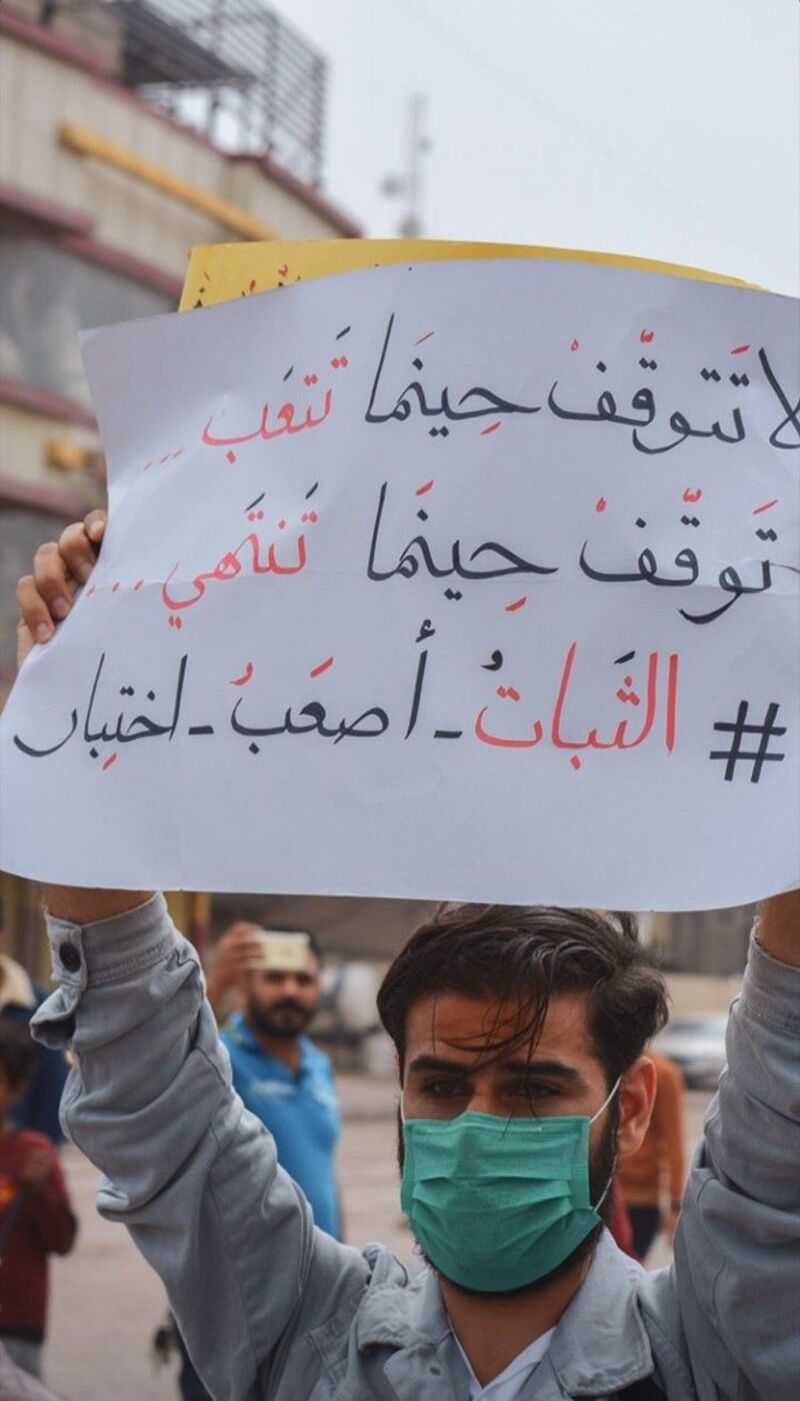 لا تَتَوقّفْ حِينَما تَتعَب ...
تَوقّفْ حِينَما تَنتَهي ...
# الثَباتُ - أصعَبُ - اختِبار